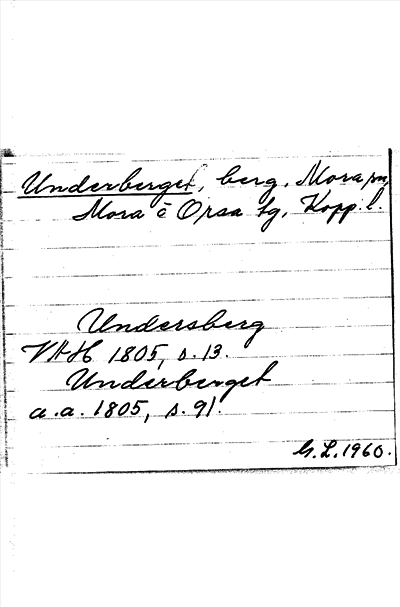 Underberget, berg, Mora sn,
Mora o Orsa tg, Kopp. l.
Undersberg
VAH 1805, s. 13.
Underberget
a.a. 1805, s. 91.
G.L. 1960.